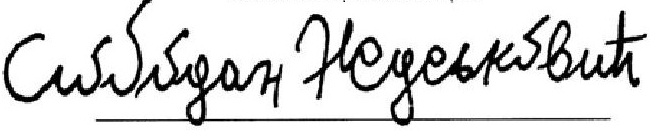 Слободан Недељковић